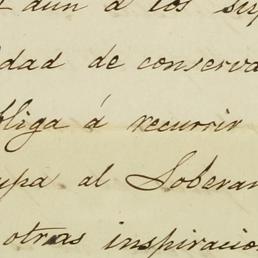 aun a los
dad de conserva
bliga á recurrir
upa al Soberan
otras inspiracio